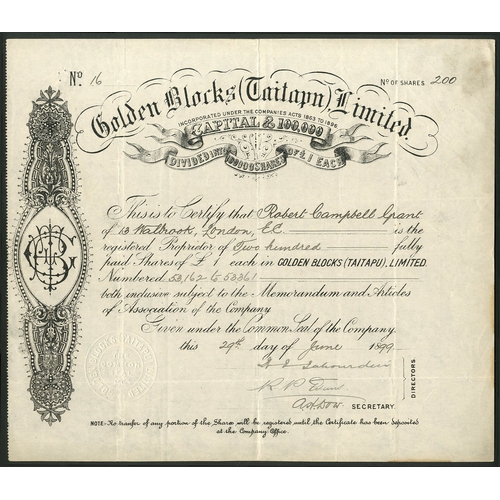 No. 16
No OF SHARES 200
Golden Blocks (Taitapu), Limited.
INCORPORATED UNDER THE COMPANIES ACTS 1862 TO 1898
CAPITAL £100,000
DIVIDED INTO 100000 SHARES OF £1 EACH
This is to Certify that Robert Campbell Grant
of 13 Walbrook, London, E.C. is the
registered Proprietor of Two hundred fully
paid Shares of £1 each in GOLDEN BLOCKS (TAITAPU), LIMITED.
Numbered 53,162 to 53361
both inclusive subject to the Memorandum and Articles
of Association of the Company
Given under the Common Seal of the Company.
this 29th day of June 1899
DIRECTORS
SECRETARY.
NOTE- No transfer of any portion of the Shares will be registered until the Certificate has been deposited
at the Company's Office.